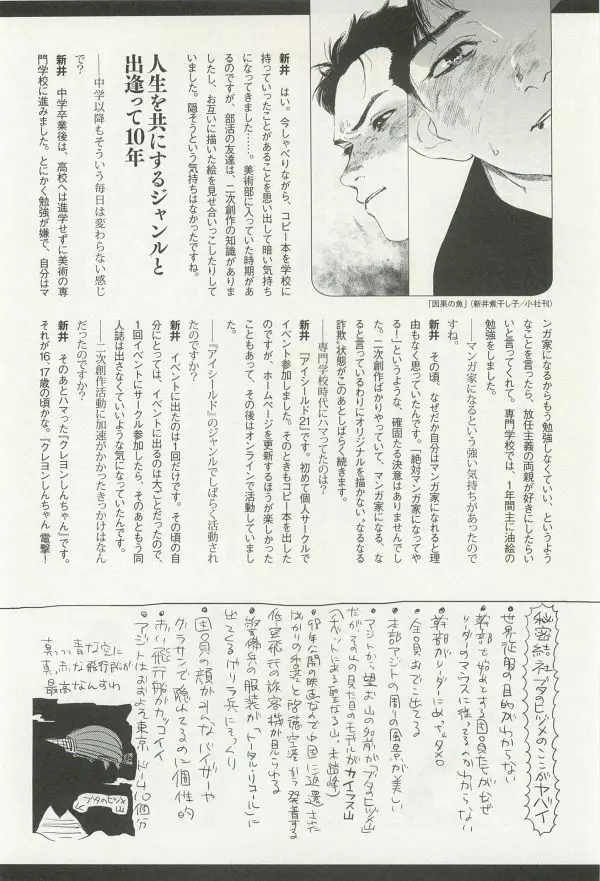 新井　はい。今しゃべりながら、コピー本を学校に
持っていったことがあることを思い出して暗い気持ち
になってきました……。美術部に入っていた時期があ
るのですが、部活の友達は、二次創作の知識がありま
したし、お互いに描いた絵を見せ合いっこしたりして
いました。隠そうという気持ちはなかったですね。
人生を共にするジャンルと
出逢って10年
――中学以降もそういう毎日は変わらない感じ
で？
新井　中学卒業後は、高校へは進学せずに美術の専
門学校に進みました。とにかく勉強が嫌で、自分はマ
「因果の魚」（新井煮干し子／小社刊）
ンガ家になるからもう勉強しなくていい、というよう
なことを言ったら、放任主義の両親が好きにしたらい
いと言ってくれて。専門学校では、1年間主に油絵の
勉強をしました。
――マンガ家になるという強い気持ちがあったので
すね。
新井　その頃、なぜだか自分はマンガ家になれると理
由もなく思っていたんです。「絶対マンガ家になってや
る！」というような、確固たる決意はありませんでし
た。二次創作ばかりやっていて、マンガ家になる、な
ると言っているわりにオリジナルを描かない“なるなる
詐欺”状態がこのあとしばらく続きます。
――専門学校時代にハマってたのは？
新井　『アイシールド21』です。初めて個人サークルで
イベント参加しました。そのときもコピー本を出した
のですが、ホームページを更新するほうが楽しかった
こともあって、その後はオンラインで活動していまし
た。
――『アイシールド』のジャンルでしばらく活動され
たのですか？
新井　イベントに出たのは1回だけです。その頃の自
分にとっては、イベントに出るのは大ごとだったので、
1回イベントにサークル参加したら、そのあともう同
人誌は出さなくていいような気になっていたんです。
――二次創作活動に加速がかかったきっかけはなん
だったのですか？
新井　そのあとハマった『クレヨンしんちゃん』です。
それが16、17歳の頃かな。『クレヨンしんちゃん 電撃！
秘密結社ブタのヒヅメのここがヤバイ
・世界征服の目的がわからない
・幹部を始めとする団員たちがなぜ
リーダーのマウスに従ってるのかわからない
・幹部がリーダーにめっちゃタメ口
・全員おでこ出てる
・本部アジトの周りの風景が美しい
・アジトから望むお山の名前が「ブタのヒヅメ山」
だがその山の見た目のモデルがカイラス山
（チベットにある聖なる山、未踏峰）
・98年公開の映画なので中国に返還された
ばかりの香港と啓徳空港から発着する
低空飛行の旅客機が見られる
・警備兵の服装が「トータル・リコール」に
出てくるゲリラ兵にそっくり
・団員の顔がみんなバイザーや
グラサンで隠れてるのに個性的
・赤い飛行船がカッコイイ
・アジトはおおよそ東京ドーム10個分
真っ青な空に
真っ赤な飛行船が
最高なんすわ
ブタのヒヅメ
山